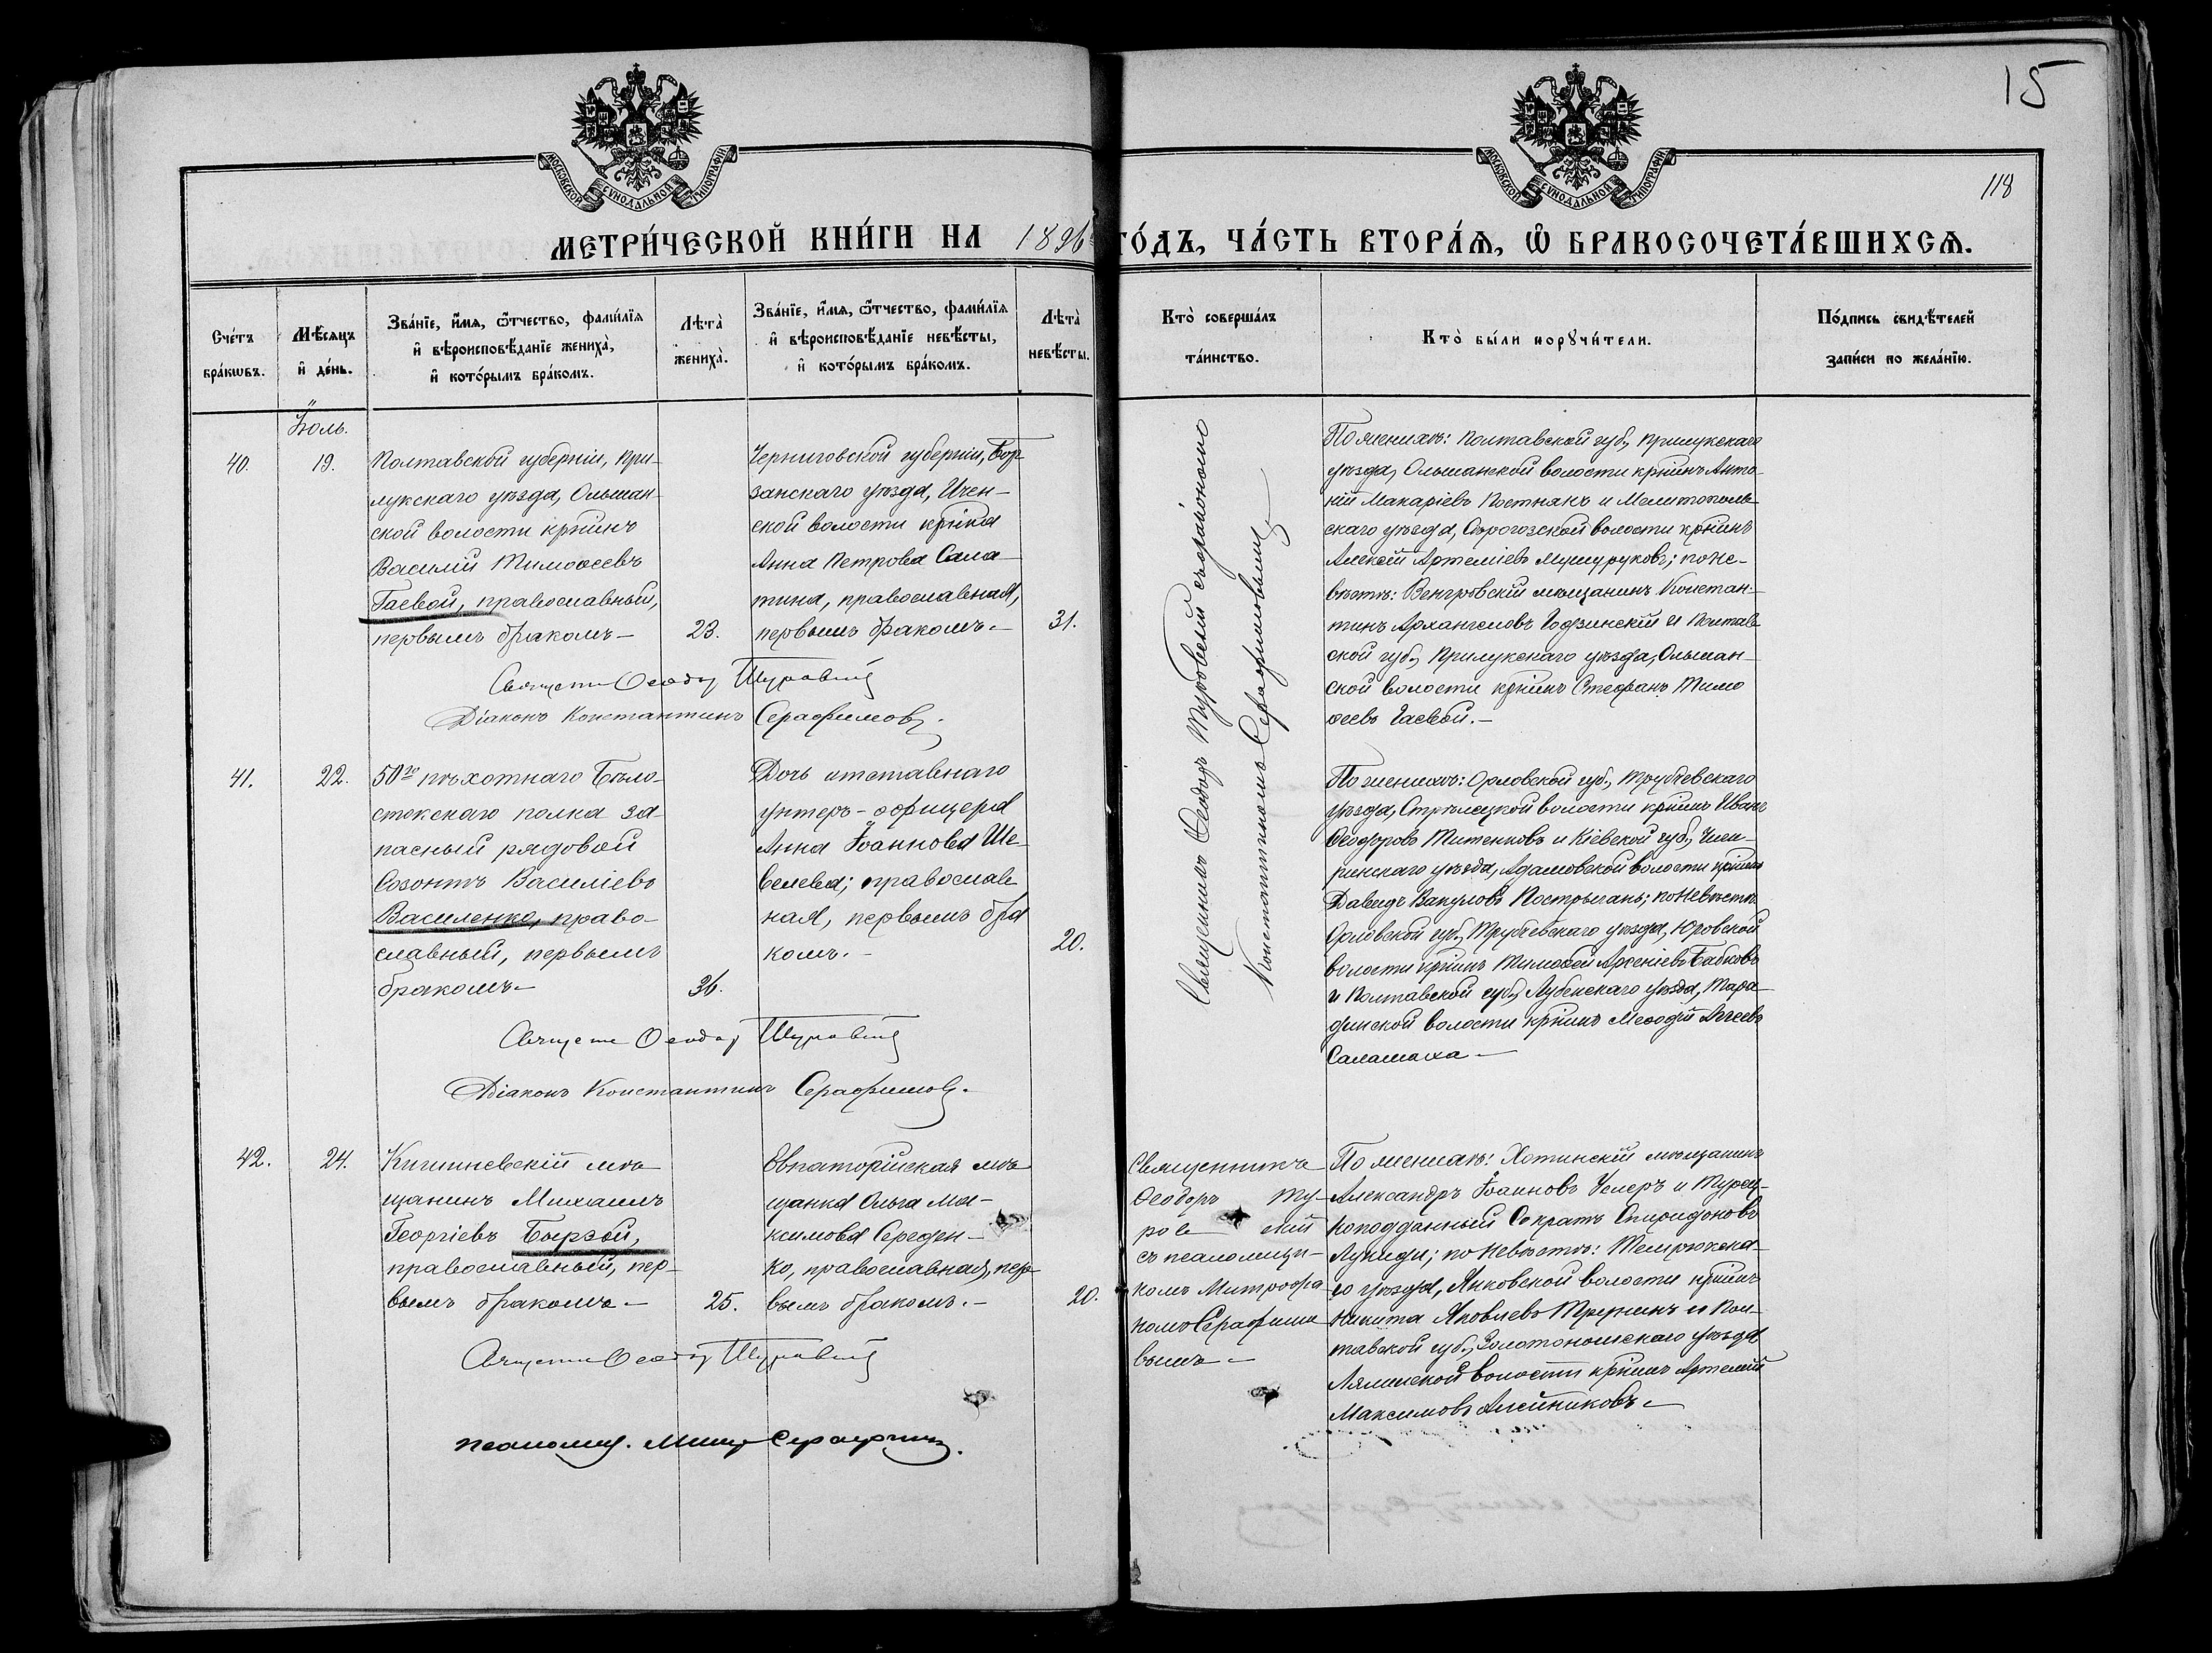 15
118
МОСКОВСКОЙ СѴНОДАЛЬНОЙ ТИПОГРАФІИ
МОСКОВСКОЙ СѴНОДАЛЬНОЙ ТИПОГРАФІИ
МЕТРИ́ЧЕСКОЙ КНИ́ГИ НА 1896 ГО́ДЪ, ЧА́СТЬ ВТОРА́Я, Ѡ БРАКОСОЧЕТА́ВШИХСЯ.
Сче́тъ бра́кωвъ.
Мѣ́сяцъ и де́нь.
Зва́нїе, и́мя, ѻ́тчество, фами́лїя
и вѣроисповѣ́данїе жениха̀,
и кото́рымъ бра́комъ.
Лѣта̀ жениха̀.
Зва́нїе, и́мя, ѻ́тчество, фами́лїя
и вѣроисповѣ́данїе невѣ́сты,
и кото́рымъ бра́комъ.
Лѣта̀ невѣ́сты.
Кто̀ соверша́лъ
та́инство.
Кто̀ бы́ли порꙋчи́тели.
По́дпись свидѣ́телей
за́писи по жела́нїю.
Іюль.
40.
19.
Полтавской губерніи, При-
лукскаго уѣзда, Ольшан-
ской волости кр҃нинъ
Василій Тимоѳеевъ
Гаевой, православный,
первымъ бракомъ —
23.
Черниговской губерніи, Бор-
занскаго уѣзда, Ичен-
ской волости кр҃нка
Анна Петрова Сала-
тина, православная,
первымъ бракомъ. —
31.
Священникъ Ѳеодоръ Туровскій съ діакономъ
Константиномъ Серафимовымъ
По женихѣ: Полтавской губ., Прилукскаго
уѣзда, Ольшанской волости кр҃нинъ Анто-
ній Макаріевъ Постнякъ и Мелитополь-
скаго уѣзда, волости кр҃нинъ
Алексѣй Артеміевъ Мушуруковъ; по не-
вѣстѣ: Венгровскій мѣщанинъ Констан-
тинъ Архангеловъ Годзинскій и Полтав-
ской губ., Прилукскаго уѣзда, Ольшан-
ской волости кр҃нинъ Стефанъ Тимо
ѳеевъ Гаевой. —
Священ Ѳеодор Туровскій
Діаконъ Константинъ Серафимовъ.
41.
22.
50го пѣхотнаго Бѣло-
стокскаго полка за-
пасный рядовой
Созонтъ Василіевъ
Василенко, право-
славный, первымъ
бракомъ —
36.
Дочь отставнаго
унтеръ-офицера
Анна Іоаннова Ше-
велева; православ
ная, первымъ бра
комъ. —
20.
По женихѣ: Орловской губ., Трубчевскаго
уѣзда, Стрѣлецкой волости кр҃нинъ Иванъ
Ѳеодоровъ Титенковъ и Кіевской губ., Чиги-
ринскаго уѣзда, Адамовской волости кр҃нинъ
Давидъ Вакуловъ Постригань; по невѣстѣ:
Орловской губ., Трубчевскаго уѣзда, Юровской
волости кр҃нинъ Тимоѳей Арсеніевъ Бабковъ
и Полтавской губ., Лубенскаго уѣзда, Тара-
ндинской волости кр҃нинъ Меѳодій
Саламаха —
Священ Ѳеодор Туровскій
Діаконъ Константинъ Серафимовъ.
42.
24.
Кишиневскій мѣ-
щанинъ Михаилъ
Георгіевъ Бырзой,
православный, пер-
вымъ бракомъ —
25.
Евпаторійская мѣ-
щанка Ольга Ма-
ксимова Середен-
ко, православная, пер-
вымъ бракомъ. —
20.
Священникъ
Ѳеодоръ Ту-
ров скій
съ псаломщи-
комъ Митрофа
номъ Серафимо
вымъ —
По женихѣ: Хотинскій мѣщанинъ
Александръ Іоанновъ Челеръ и Турец-
коподданный Сократъ Спиридоновъ
Лукиди; по невѣстѣ: Темрюкска-
го уѣзда, Янковской волости кр҃нинъ
Никита Яковлевъ и Пол-
тавской губ., Золотоношскаго уѣзда
волости кр҃нинъ Артемій
Максимовъ Алейниковъ —
Священ Ѳеодор Туровскій
Псаломщ. Митр Серафимов.